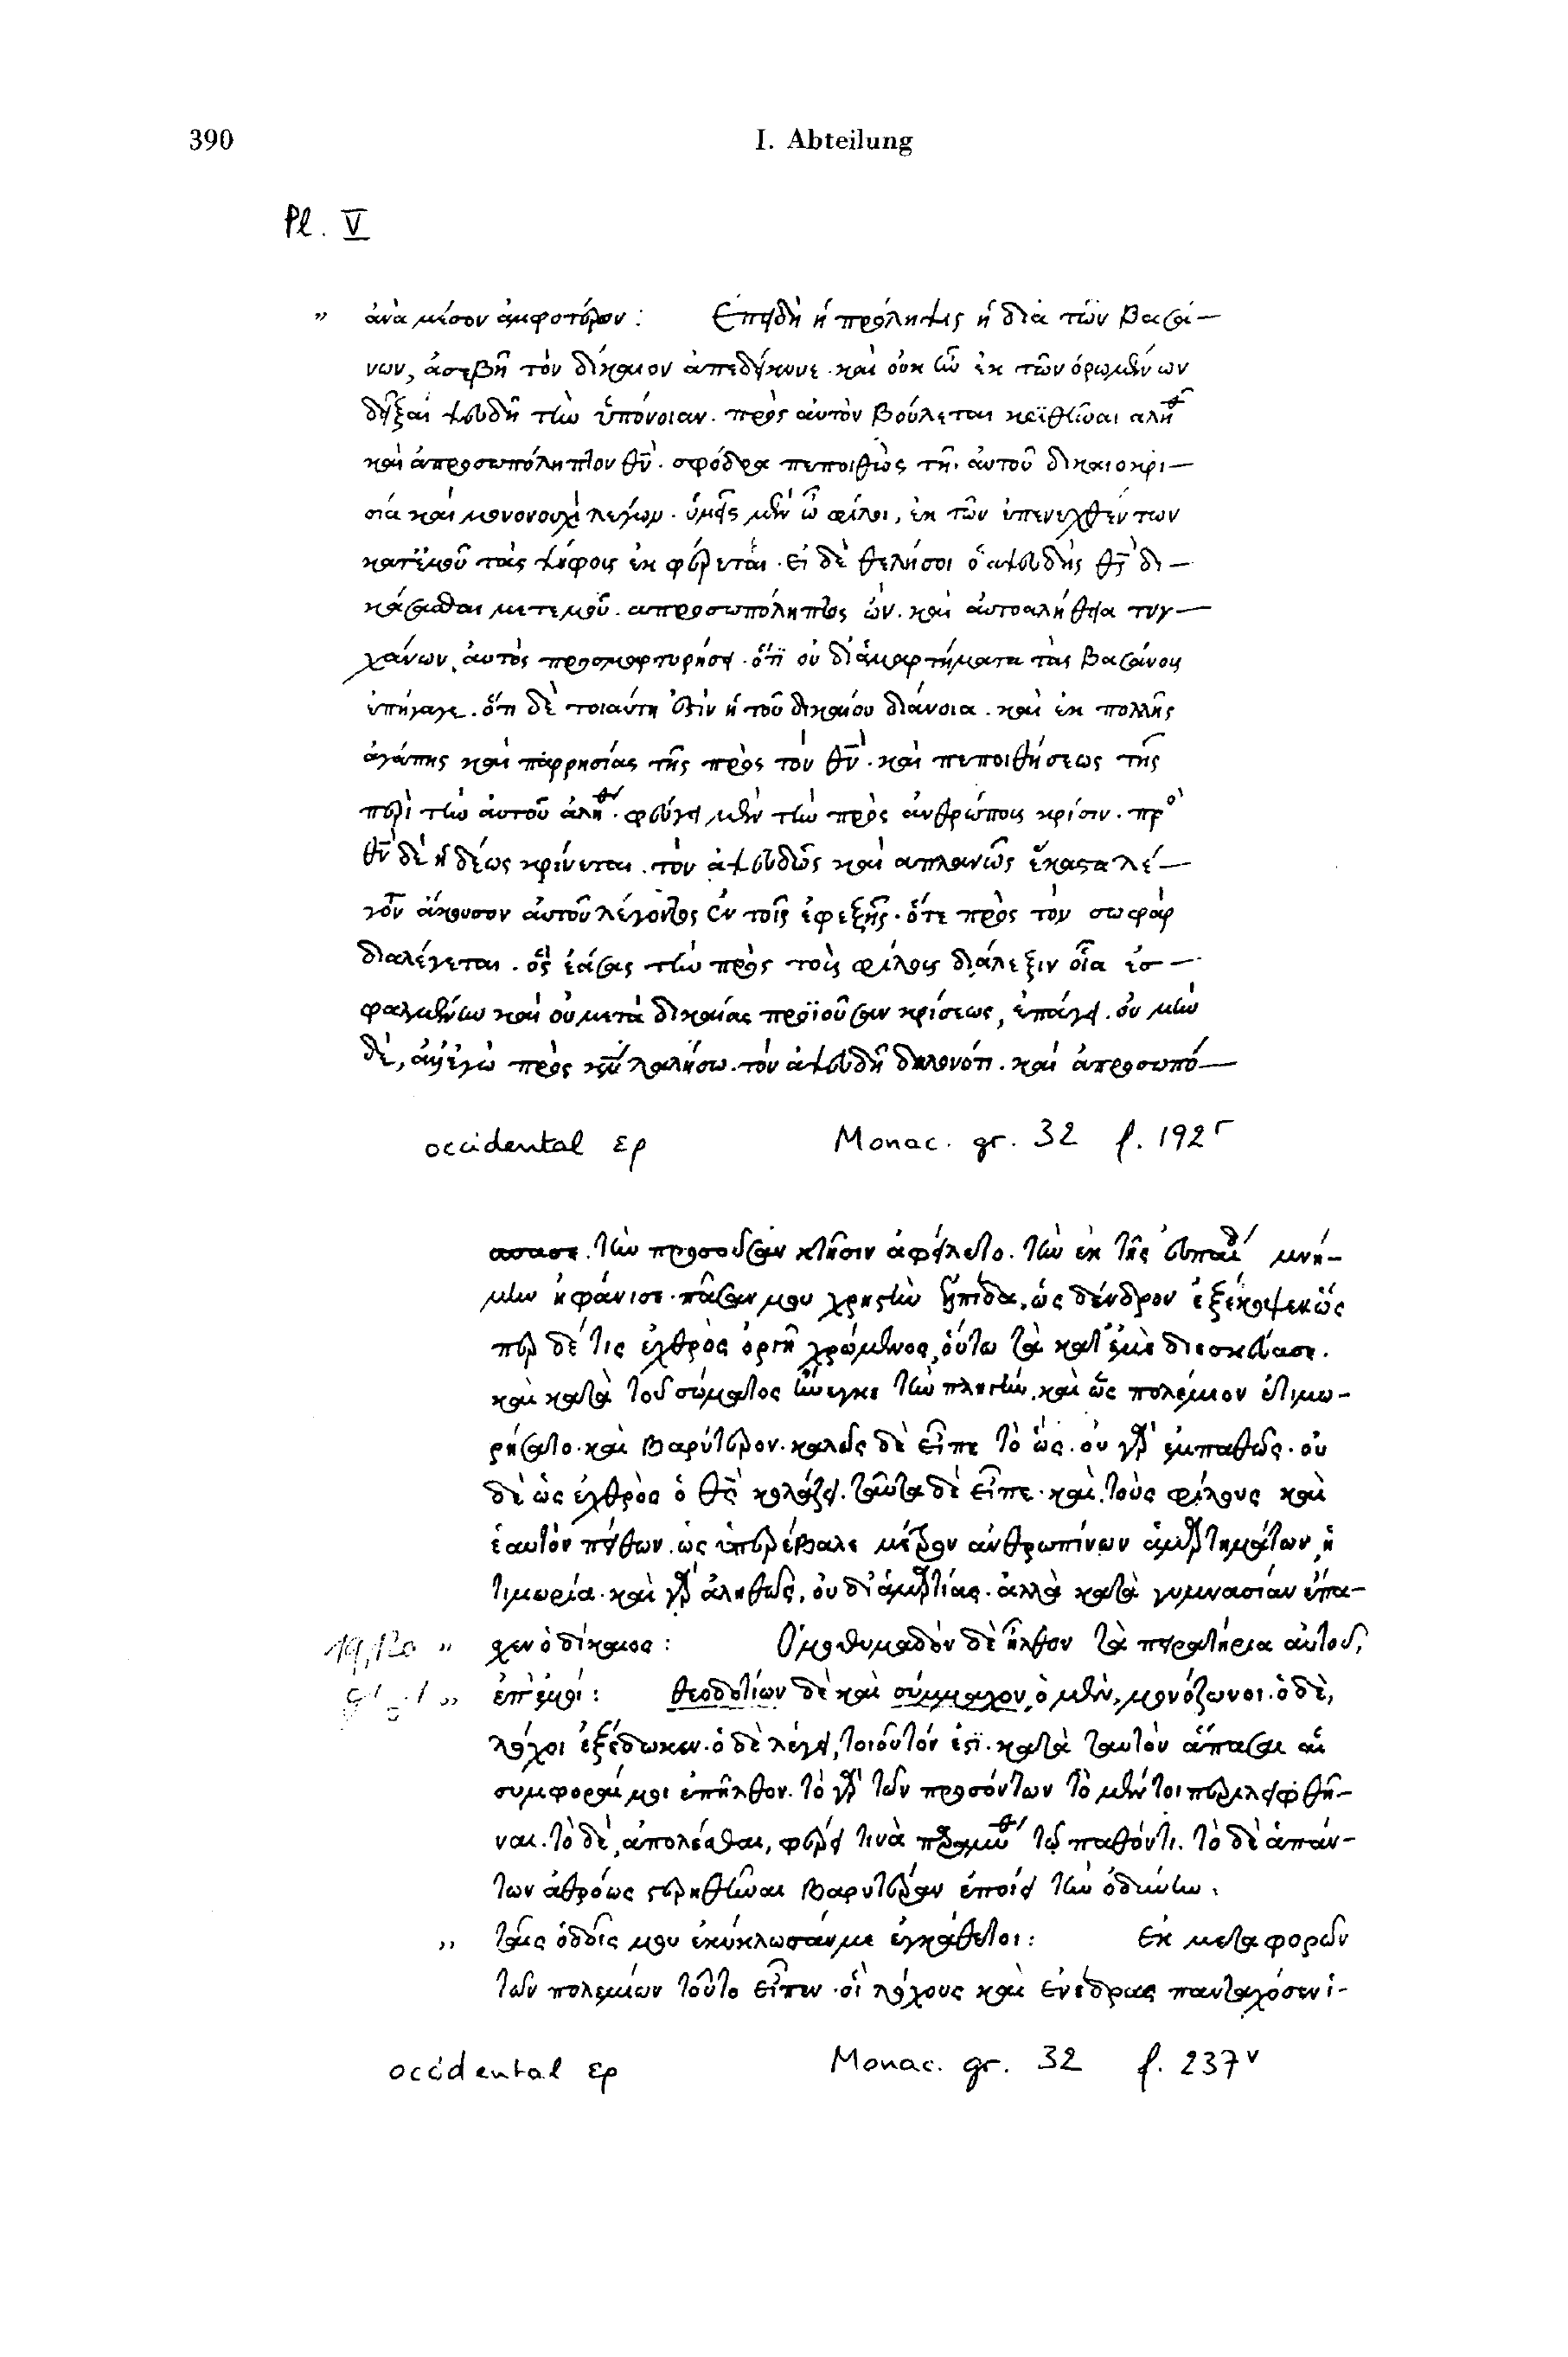 390 I. Abteilung
Pl. V
" ἀνὰ μέσον ἀμφοτέρων : Ἐπειδὴ ἡ πρόληψις ἡ διὰ τῶν βασά–
νων, ἀσεβῆ τὸν δίκαιον ἀπεδείκνυε· καὶ οὐκ ἦν ἐκ τῶν ὁρωμένων
δεῖξαι ψευδῆ τὴν ὑπόνοιαν. πρὸς αὐτὸν βούλεται κριθῆναι
καὶ ἀπροσωπόληπτον θν̅. σφόδρα πεποιθὼς τῆ αὐτοῦ δικαιοκρι–
σία καὶ μονονουχὶ λέγων. ὑμεῖς μὲν ὦ φίλοι, ἐκ τῶν ἐπενεχθέντων
κατ' ἐμοῦ τὰς ψήφους ἐκφέρεται. εἰ δὲ θελήσοι ὁ ἀψευδὴς θς̅ δι–
κάσασθαι μετ' ἐμοῦ. ἀπροσωπόληπτος ὢν. καὶ αὐτοαλήθεια τυγ–
χάνων, αὐτὸς προσμαρτυρήσει. ὅτι οὐ δι' ἁμαρτήματα τὰς βασάνους
ἐπήγαγε. ὅτι δὲ τοιαύτη ἐστὶν ἡ τοῦ δικαίου διάνοια. καὶ ἐκ πολλῆς
ἀγάπης καὶ παρρησίας τῆς πρὸς τὸν θν̅. καὶ πεποιθήσεως τῆς
περὶ τὴν αὐτοῦ φεύγει μὲν τὴν πρὸς ἀνθρώπους κρίσιν. πρ
θν̅ δὲ ἡδέως κρίνεται. τὸν ἀψευδῶς καὶ ἀπλανῶς ἕκαστα λέ–
γον ἄκουσον αὐτοῦ λέγοντος ἐν τοῖς ἐφεξῆς. ὅτε πρὸς τὸν σωφὰρ
διαλέγεται. ὃς ἐάσας τὴν πρὸς τοὺς φίλους διάλεξιν οἷα ἐσ–
φαλμένην καὶ οὐ μετὰ δικαίας προϊοῦσαν κρίσεως, ἐπάγει. οὐ μὴν
δὲ, ἀλλ' ἐγὼ πρὸς κν̅ λαλήσω. τὸν ἀψευδῆ δηλονότι. καὶ ἀπροσωπό–
occidental ερ Monac. gr. 32 f. 192r
τὴν προσοῦσαν κτῆσιν ἀφείλετο. τὴν ἐκ τῆς μνή–
μην ἠφάνισε. πᾶσαν μου χρηστὴν ἐλπίδα, ὡς δένδρον ἐξέκοψεν ὥς
περ δέ τις ἐχθρὸς ὀργῆ χρώμενος, οὕτω τὰ κατ' ἐμὲ διεσκέδασε.
καὶ κατὰ τοῦ σώματος ἤνεγκε τὴν πληγὴν. καὶ ὡς πολέμιον ἐτιμω–
ρήσατο. καὶ βαρύτερον. καλῶς δὲ εἶπε τὸ ὡς. οὐ γὰρ ἐμπαθῶς. οὐ
δὲ ὡς ἐχθρὸς ὁ θς̅ κολάζει. ταῦτα δὲ εἶπε. καὶ τοὺς φίλους καὶ
ἑαυτὸν πείθων. ὡς ὑπερέβαλε μέτρον ἀνθρωπίνων ἁμαρτημάτων ἡ
τιμωρία. καὶ γὰρ ἀληθῶς, οὐ δι' ἁμαρτίας. ἀλλὰ κατὰ γυμνασίαν ἔπα–
19,12a " σχεν ὁ δίκαιος : Ὁμοθυμαδὸν δὲ ἦλθον τὰ πειρατήρια αὐτοῦ,
" ἐπ' ἐμοί : θεοδοτίων δὲ καὶ σύμμαχον, ὁ μὲν, μονόζωνοι. ὁ δὲ,
λόχοι ἐξέδωκεν. ὁ δὲ λέγει, τοιοῦτόν ἐστι. κατὰ ταυτὸν ἅπασαι αἱ
συμφοραί μοι ἐπῆλθον. τὸ γὰρ τῶν προσόντων τὸ μέντοι περιληφθῆ–
ναι. τὸ δὲ, ἀπολέσθαι, φέρει τινὰ τῷ παθόντι. τὸ δὲ ἁπάν–
των ἀθρόως στερηθῆναι βαρυτέραν ἐποίει τὴν ὀδύνην.
" ταῖς ὁδοῖς μου ἐκύκλωσάν με ἐγκάθετοι : Ἐκ μεταφορῶν
τῶν πολεμίων τοῦτο εἶπεν. οἳ λόχους καὶ ἐνέδρας πανταχόσεν ἱ–
occidental ερ Monac. gr. 32 f. 237v